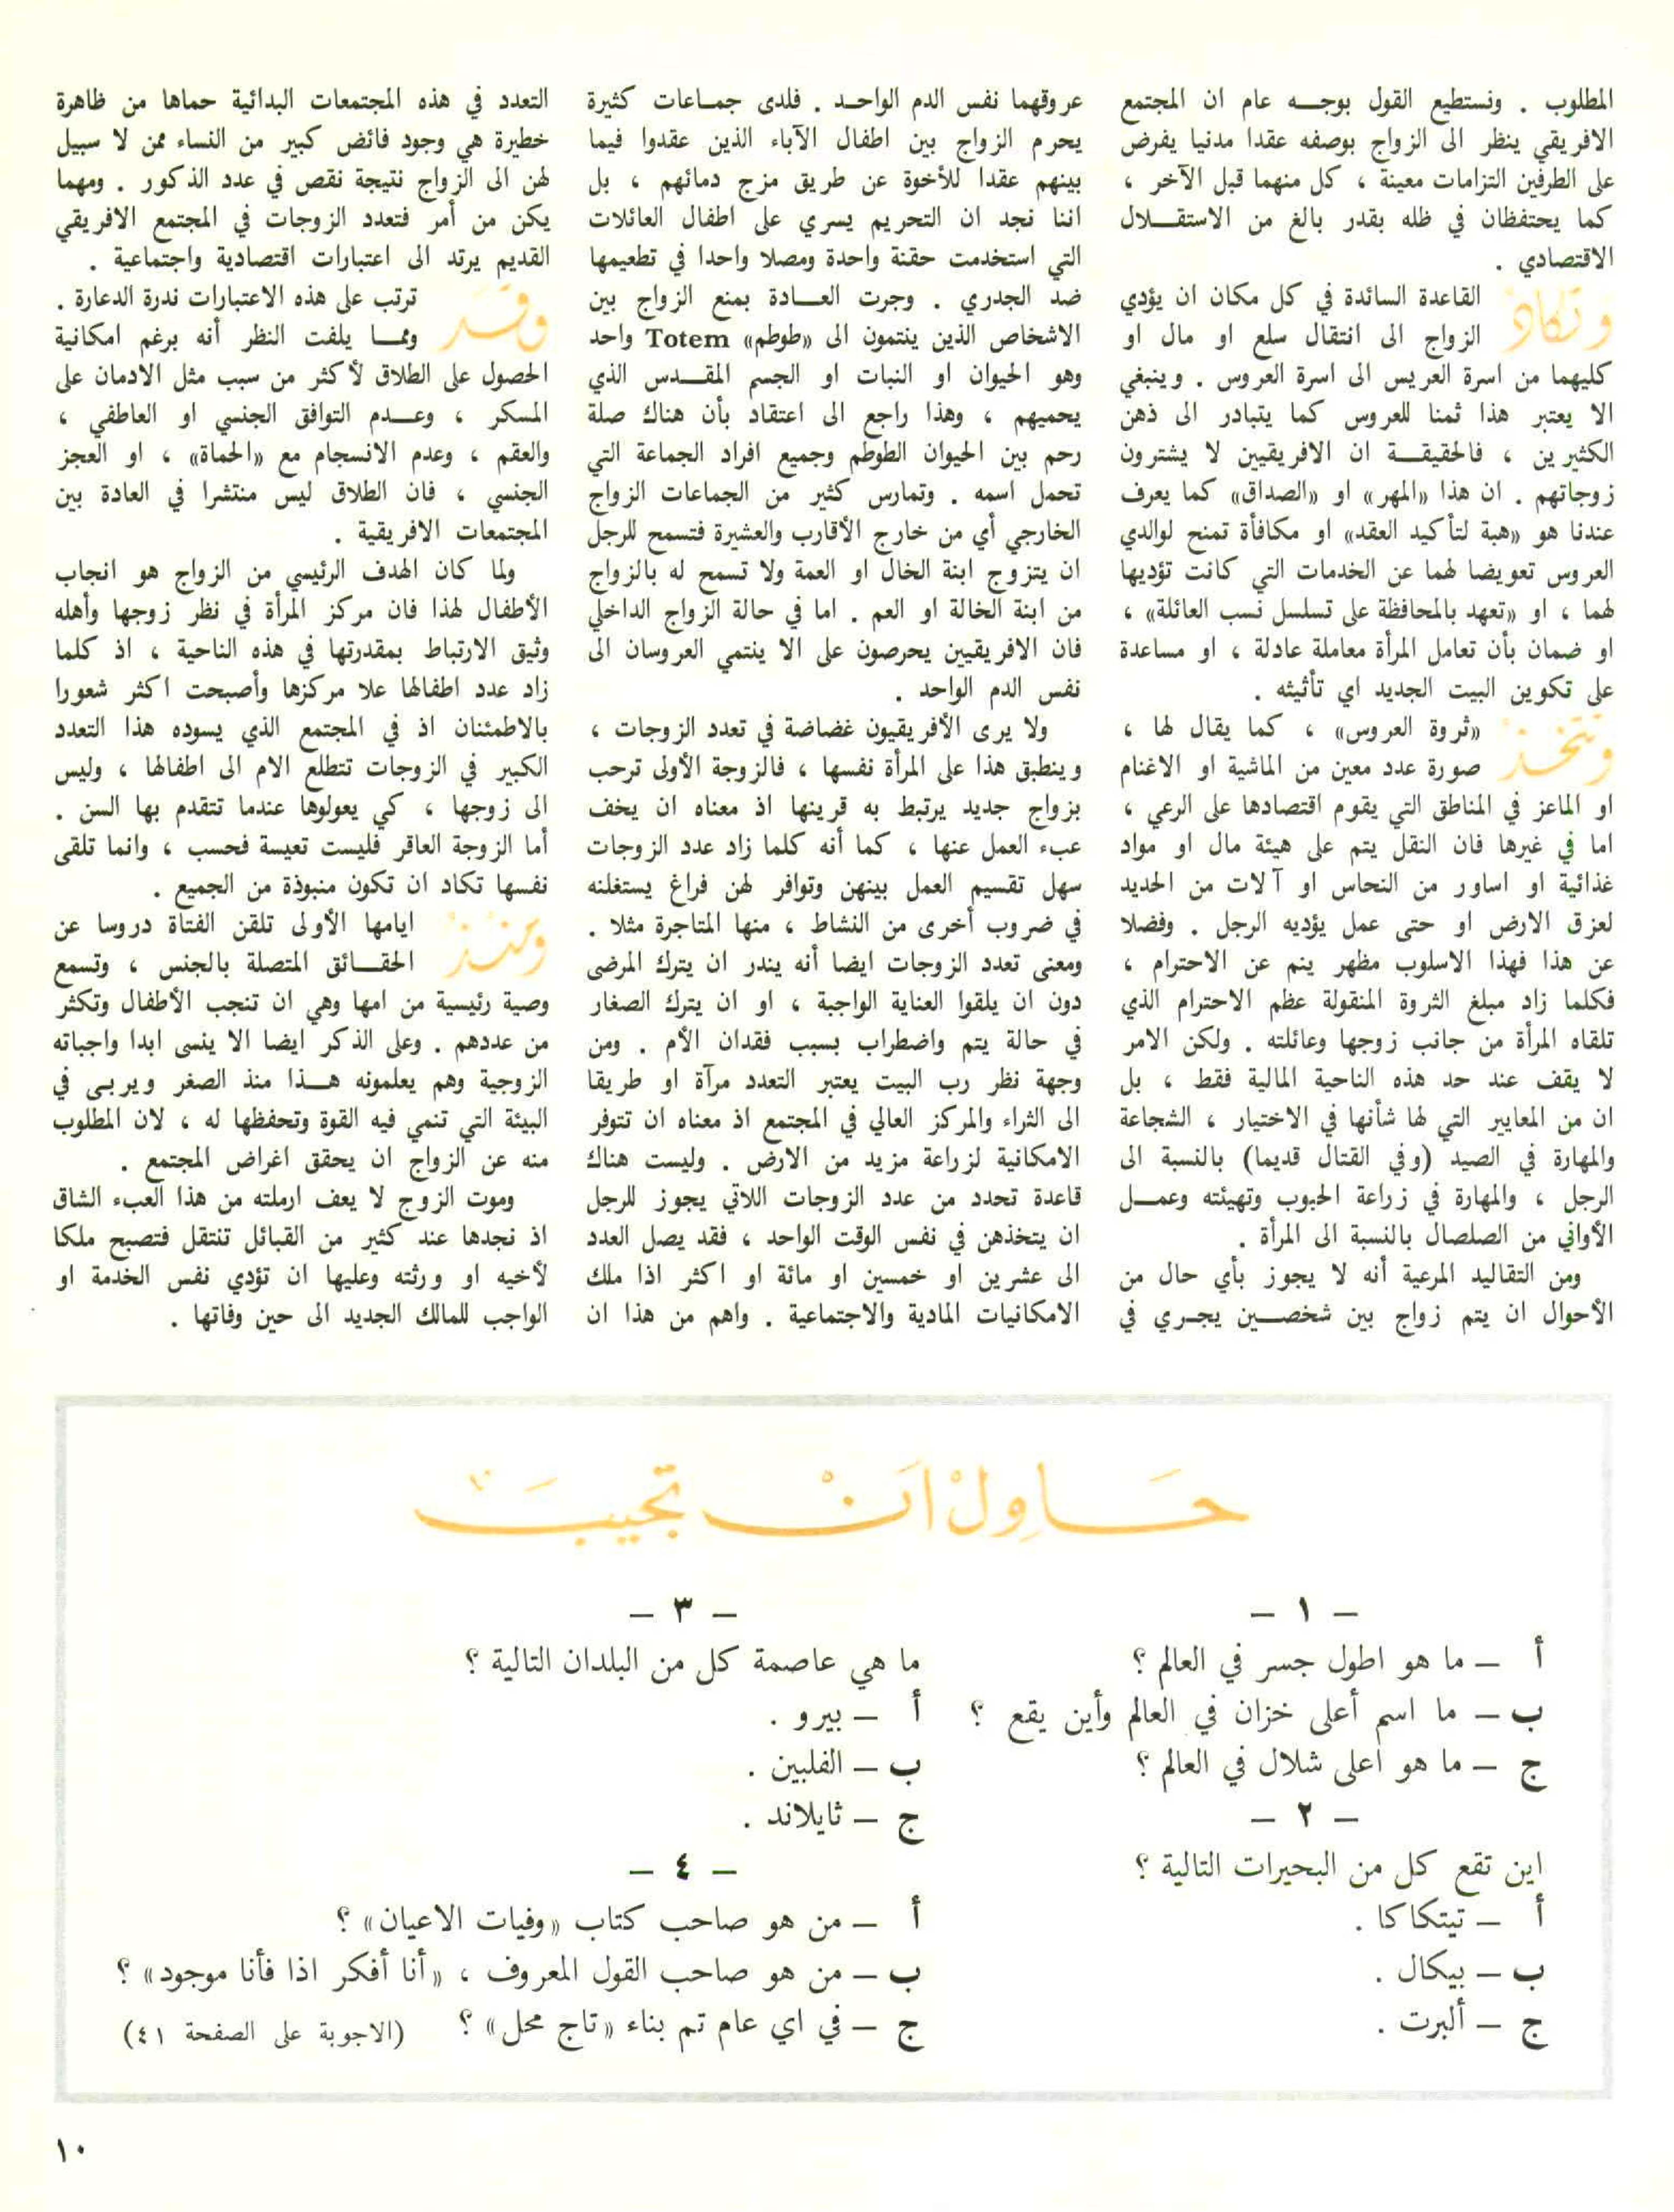 المطلوب . ونستطيع القول بوجــه عام ان المجتمع
الافريقي ينظر الى الزواج بوصفه عقدا مدنيا يفرض
على الطرفين التزامات معينة ، كل منهما قبل الآخر ،
كما يحتفظان في ظله بقدر بالغ من الاستقــلال
الاقتصادي .
وتكاد القاعدة السائدة في كل مكان ان يؤدي
الزواج الى انتقال سلع او مال او
كليهما من اسرة العريس الى اسرة العروس . وينبغي
الا يعتبر هذا ثمنا للعروس كما يتبادر الى ذهن
الكثيرين ، فالحقيقــة ان الافريقيين لا يشترون
زوجاتهم . ان هذا «المهر» او «الصداق» كما يعرف
عندنا هو «هبة لتأكيد العقد» او مكافأة تمنح لوالدي
العروس تعويضا لهما عن الخدمات التي كانت تؤديها
لهما ، او «تعهد بالمحافظة على تسلسل نسب العائلة» ،
او ضمان بأن تعامل المرأة معاملة عادلة ، او مساعدة
على تكوين البيت الجديد اي تأثيثه .
وتتخذ «ثروة العروس» ، كما يقال لها ،
صورة عدد معين من الماشية او الاغنام
او الماعز في المناطق التي يقوم اقتصادها على الرعي ،
اما في غيرها فان النقل يتم على هيئة مال او مواد
غذائية او اساور من النحاس او آلات من الحديد
لعزق الارض او حتى عمل يؤديه الرجل . وفضلا
عن هذا فهذا الاسلوب مظهر ينم عن الاحترام ،
فكلما زاد مبلغ الثروة المنقولة عظم الاحترام الذي
تلقاه المرأة من جانب زوجها وعائلته . ولكن الامر
لا يقف عند حد هذه الناحية المالية فقط ، بل
ان من المعايير التي لها شأنها في الاختيار ، الشجاعة
والمهارة في الصيد (وفي القتال قديما) بالنسبة الى
الرجل ، والمهارة في زراعة الحبوب وتهيئته وعمــل
الأواني من الصلصال بالنسبة الى المرأة .
ومن التقاليد المرعية أنه لا يجوز بأي حال من
الأحوال ان يتم زواج بين شخصــين يجـري في
عروقهما نفس الدم الواحـد . فلدى جمـاعات كثيرة
يحرم الزواج بين اطفال الآباء الذين عقدوا فيما
بينهم عقدا للأخوة عن طريق مزج دمائهم ، بل
اننا نجد ان التحريم يسري على اطفال العائلات
التي استخدمت حقنة واحدة ومصلا واحدا في تطعيمها
ضد الجدري . وجرت العــادة بمنع الزواج بين
الاشخاص الذين ينتمون الى «طوطم» Totem واحد
وهو الحيوان او النبات او الجسم المقــدس الذي
يحميهم ، وهذا راجع الى اعتقاد بأن هناك صلة
رحم بين الحيوان الطوطم وجميع افراد الجماعة التي
تحمل اسمه . وتمارس كثير من الجماعات الزواج
الخارجي أي من خارج الأقارب والعشيرة فتسمح للرجل
ان يتزوج ابنة الخال او العمة ولا تسمح له بالزواج
من ابنة الخالة او العم . اما في حالة الزواج الداخلي
فان الافريقيين يحرصون على الا ينتمي العروسان الى
نفس الدم الواحد .
ولا يرى الأفريقيون غضاضة في تعدد الزوجات ،
وينطبق هذا على المرأة نفسها ، فالزوجة الأولى ترحب
بزواج جديد يرتبط به قرينها اذ معناه ان يخف
عبء العمل عنها ، كما أنه كلما زاد عدد الزوجات
سهل تقسيم العمل بينهن وتوافر لهن فراغ يستغلنه
في ضروب أخرى من النشاط ، منها المتاجرة مثلا .
ومعنى تعدد الزوجات ايضا أنه يندر ان يترك المرضى
دون ان يلقوا العناية الواجبة ، او ان يترك الصغار
في حالة يتم واضطراب بسبب فقدان الأم . ومن
وجهة نظر رب البيت يعتبر التعدد مرآة او طريقا
الى الثراء والمركز العالي في المجتمع اذ معناه ان تتوفر
الامكانية لزراعة مزيد من الارض . وليست هناك
قاعدة تحدد من عدد الزوجات اللاتي يجوز للرجل
ان يتخذهن في نفس الوقت الواحد ، فقد يصل العدد
الى عشرين او خمسين او مائة او اكثر اذا ملك
الامكانيات المادية والاجتماعية . واهم من هذا ان
التعدد في هذه المجتمعات البدائية حماها من ظاهرة
خطيرة هي وجود فائض كبير من النساء ممن لا سبيل
لهن الى الزواج نتيجة نقص في عدد الذكور . ومهما
يكن من أمر فتعدد الزوجات في المجتمع الافريقي
القديم يرتد الى اعتبارات اقتصادية واجتماعية .
وقد ترتب على هذه الاعتبارات ندرة الدعارة .
وممــا يلفت النظر أنه برغم امكانية
الحصول على الطلاق لأكثر من سبب مثل الادمان على
المسكر ، وعــدم التوافق الجنسي او العاطفي ،
والعقم ، وعدم الانسجام مع «الحماة» ، او العجز
الجنسي ، فان الطلاق ليس منتشرا في العادة بين
المجتمعات الافريقية .
ولما كان الهدف الرئيسي من الزواج هو انجاب
الأطفال لهذا فان مركز المرأة في نظر زوجها وأهله
وثيق الارتباط بمقدرتها في هذه الناحية ، اذ كلما
زاد عدد اطفالها علا مركزها وأصبحت اكثر شعورا
بالاطمئنان اذ في المجتمع الذي يسوده هذا التعدد
الكبير في الزوجات تتطلع الام الى اطفالها ، وليس
الى زوجها ، كي يعولوها عندما تتقدم بها السن .
أما الزوجة العاقر فليست تعيسة فحسب ، وانما تلقى
نفسها تكاد ان تكون منبوذة من الجميع .
ومنذ ايامها الأولى تلقن الفتاة دروسا عن
الحقــائق المتصلة بالجنس ، وتسمع
وصية رئيسية من امها وهي ان تنجب الأطفال وتكثر
من عددهم . وعلى الذكر ايضا الا ينسى ابدا واجباته
الزوجية وهم يعلمونه هــذا منذ الصغر ويربى في
البيئة التي تنمي فيه القوة وتحفظها له ، لان المطلوب
منه عن الزواج ان يحقق اغراض المجتمع .
وموت الزوج لا يعف ارملته من هذا العبء الشاق
اذ نجدها عند كثير من القبائل تنتقل فتصبح ملكا
لأخيه او ورثته وعليها ان تؤدي نفس الخدمة او
الواجب للمالك الجديد الى حين وفاتها .
حَاوِلْ اَنْ تجيبَ
– ١ –
أ – ما هو اطول جسر في العالم ؟
ب – ما اسم أعلى خزان في العالم وأين يقع ؟
ج – ما هو اعلى شلال في العالم ؟
– ٢ –
اين تقع كل من البحيرات التالية ؟
أ – تيتكاكا .
ب – بيكال .
ج – ألبرت .
– ٣ –
ما هي عاصمة كل من البلدان التالية ؟
أ – بيرو .
ب – الفلبين .
ج – ثايلاند .
– ٤ –
أ – من هو صاحب كتاب «وفيات الاعيان» ؟
ب – من هو صاحب القول المعروف ، «أنا أفكر اذا فأنا موجود» ؟
ج – في اي عام تم بناء «تاج محل» ؟ (الاجوبة على الصفحة ٤١)
١٠